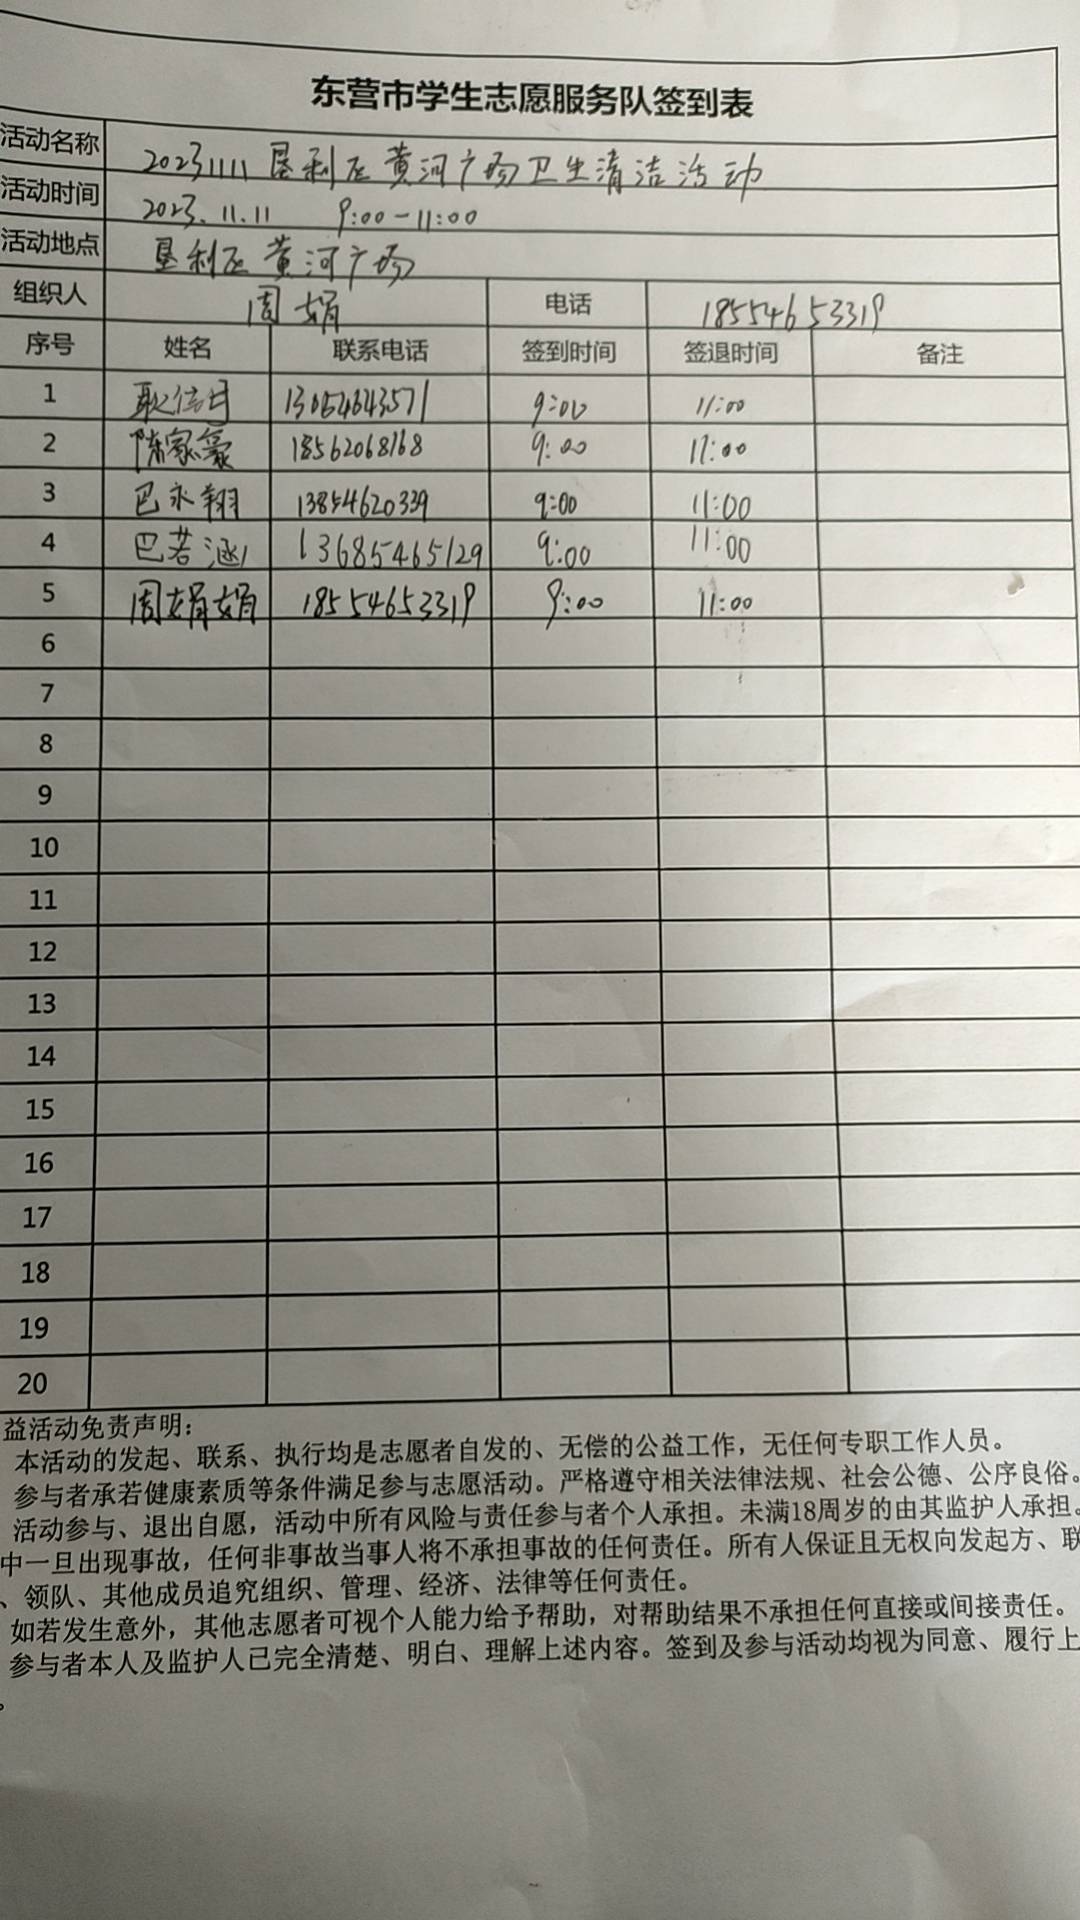 东营市学生志愿服务队签到表
活动名称 20231111 垦利区黄河广场卫生清洁活动
活动时间 2023.11.11 9:00-11:00
活动地点 垦利区黄河广场
组织人 周娟 电话 18554653319
序号 姓名 联系电话 签到时间 签退时间 备注
1 13054643571 9:00 11:00
2 陈家豪 18562068168 9:00 11:00
3 巴永翔 13854620339 9:00 11:00
4 巴若涵 13685465129 9:00 11:00
5 周娟娟 18554653319 9:00 11:00
6
7
8
9
10
11
12
13
14
15
16
17
18
19
20
益活动免责声明：
本活动的发起、联系、执行均是志愿者自发的、无偿的公益工作，无任何专职工作人员。
参与者承若健康素质等条件满足参与志愿活动。严格遵守相关法律法规、社会公德、公序良俗。
活动参与、退出自愿，活动中所有风险与责任参与者个人承担。未满18周岁的由其监护人承担。
中一旦出现事故，任何非事故当事人将不承担事故的任何责任。所有人保证且无权向发起方、联
、领队、其他成员追究组织、管理、经济、法律等任何责任。
如若发生意外，其他志愿者可视个人能力给予帮助，对帮助结果不承担任何直接或间接责任。
参与者本人及监护人已完全清楚、明白、理解上述内容。签到及参与活动均视为同意、履行上
。